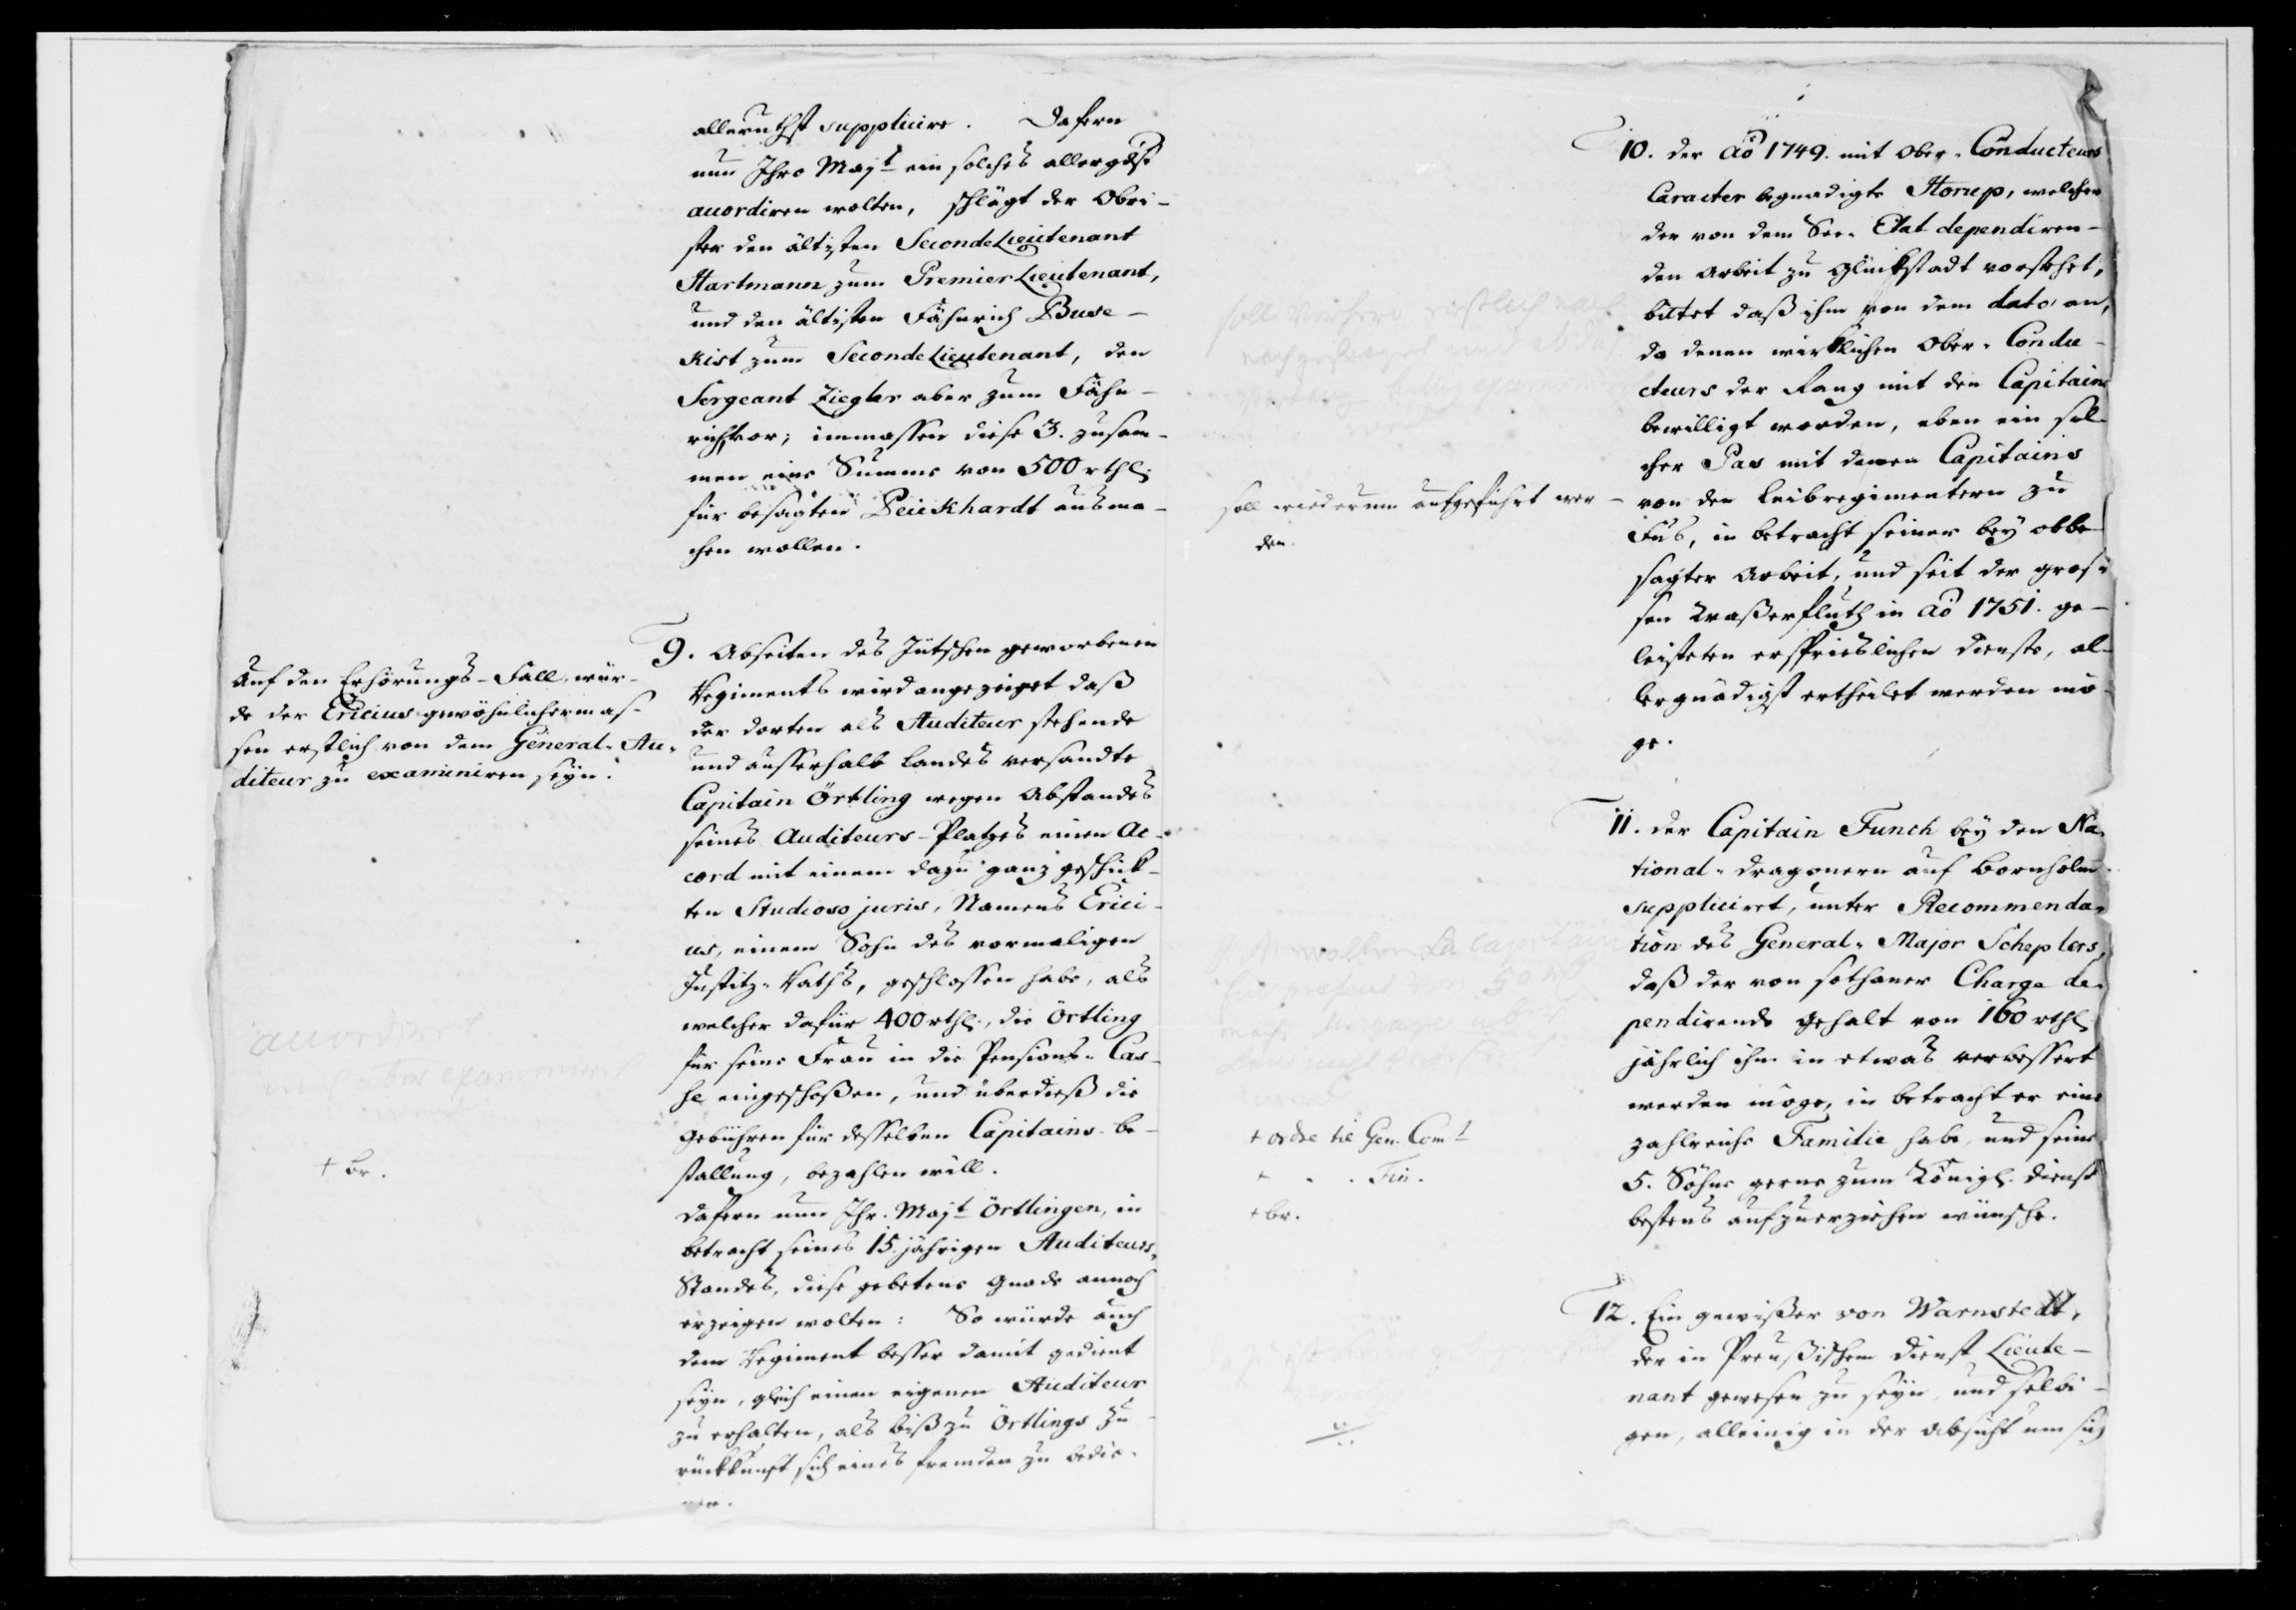 allerunthst suppliicire. Dafern
nun Ihro Majt ein solches allergdst
accordiren wolten, schlägt der Obri-
ster den ältisten SecondeLieutenant
Hartmann zum PremierLieutenant,
und den ältisten Fähnrich Buse-
kist zum SecondeLieutenant, den
Sergeant Ziegler aber zum Fähn-
rich, vor; immassen diese 3. zusam-
men eine Summe von 500 rthl.
für besagten Peickhardt ausma-
chen wollen.
9. Abseiten des Jütschen geworbenen
Regiments wird angezeiget daß
der dorten als Auditeur stehende
und ausserhalb Landes versandte
Capitain Örtling wegen Abstandes
seines Auditeurs-Platzes einen Ac-
cord mit einem dazu ganz geschick-
ten Studioso juris, Namens Erici-
us, einem Sohn des vormaligen
Justitz-Raths, geschlossen habe, als
welcher dafür 400 rthl., die Örtling
für seine Frau in die Pensions-Cas-
se eingeschoßen, und überdieß die
Gebühren für desselben Capitains-be-
stallung, bezahlen will.
Dafern nun Ihr. Majt Örtlingen, in
betracht seines 15. jährigen Auditeurs-
Standes, diese gebetene Gnade annoch
erzeigen wolten: So würde auch
dem Regiment besser damit gedient
seyn, gleich einen eigenen Auditeur
zu erhalten, als biß zu Örtlings Zu-
rückkunft sich eines fremden zu bedie-
nen.
Auf den Erhörungs-Fall, wür-
de der Ericius gewöhnlichermas-
sen erstlich von dem General-Au-
diteur zu examiniren seyn.
accordirt
muß aber examiniret
werden
+ br.
10. der Aõ 1749. mit Ober-Conducteurs
Caracter begnadigte Storup, welcher
der von dem See-Etat dependiren-
den Arbeit zu Glückstadt vorstehet,
bittet daß ihm von dem dato an,
da denen wirklichen Ober-Condu-
cteurs der Rang mit den Capitains
bewilligt worden, eben ein sol-
cher Pas mit denen Capitains
von den Leibregimentern zu
Fus, in betracht seiner bey obbe-
sagter Arbeit, und seit der gros-
sen Waßerfluth in Aõ 1751. ge-
leisteten ersprieslichen Dienste, al-
lergnädigst ertheilet werden mö-
ge.
soll wiederum aufgeführt wer-
den.
11. der Capitain Funch bey den Na-
tional-dragonern auf Bornholm
suppliciret, unter Recommenda-
tion des General-Major Scheplers,
daß der von sothaner Charge de-
pendirende Gehalt von 160 rthl
jährlich ihm in etwas verbessert
werden möge, in betracht er eine
zahlreiche Familie habe, und seine
5. Söhne gerne zum Königl. Dienst
bestens aufzuerziehen wünsche.
+ ordre til Gen. Comt
+ . . Fin.
+ br.
12. Ein gewißer von Warnstedt,
der in Preußischem Dienst Lieute-
nant gewesen zu seyn, und selbi-
gen, alleinig in der Absicht um sich